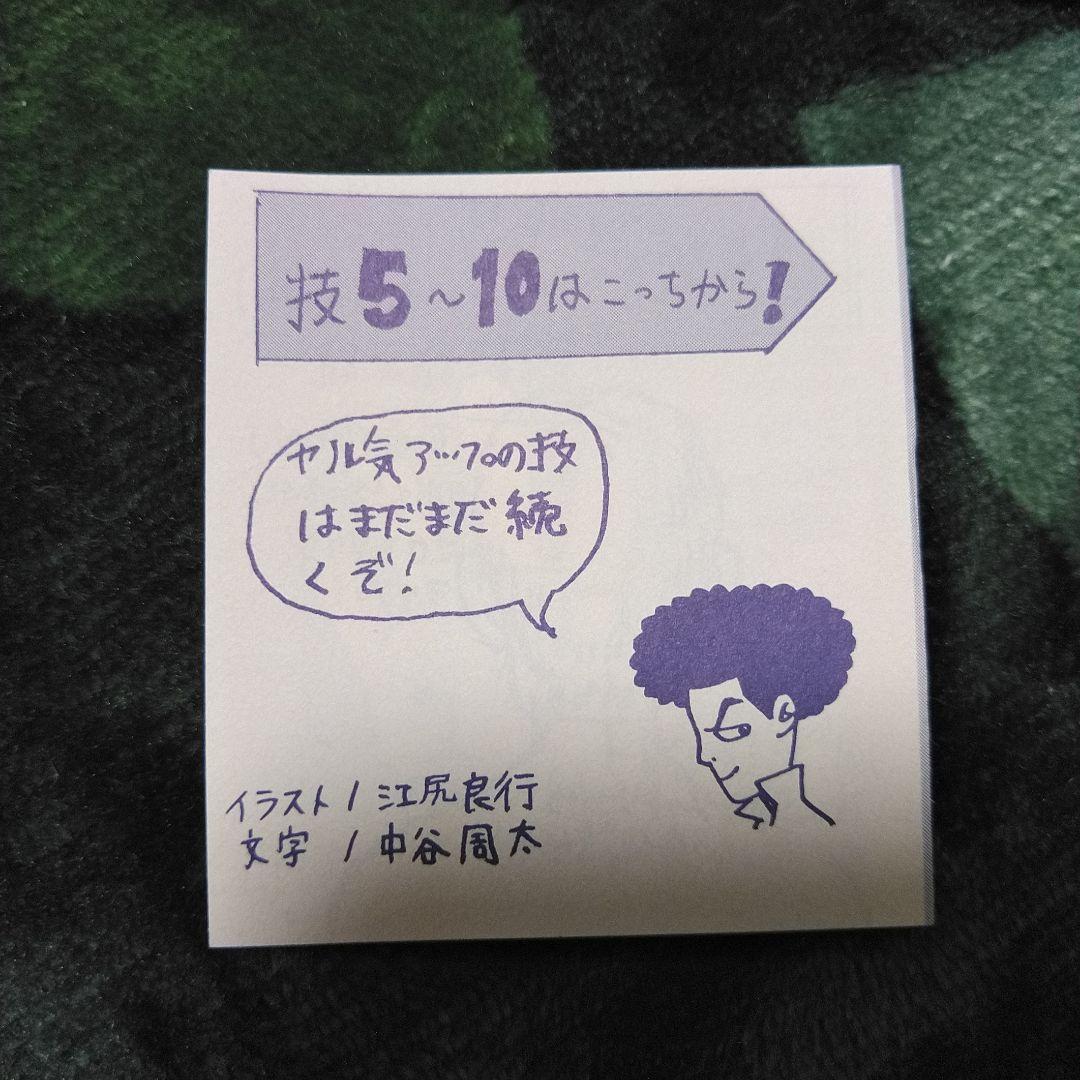 技5～10はこっちから!
ヤル気アップの技
はまだまだ続
くぞ!
イラスト/江尻良行
文字/中谷周太